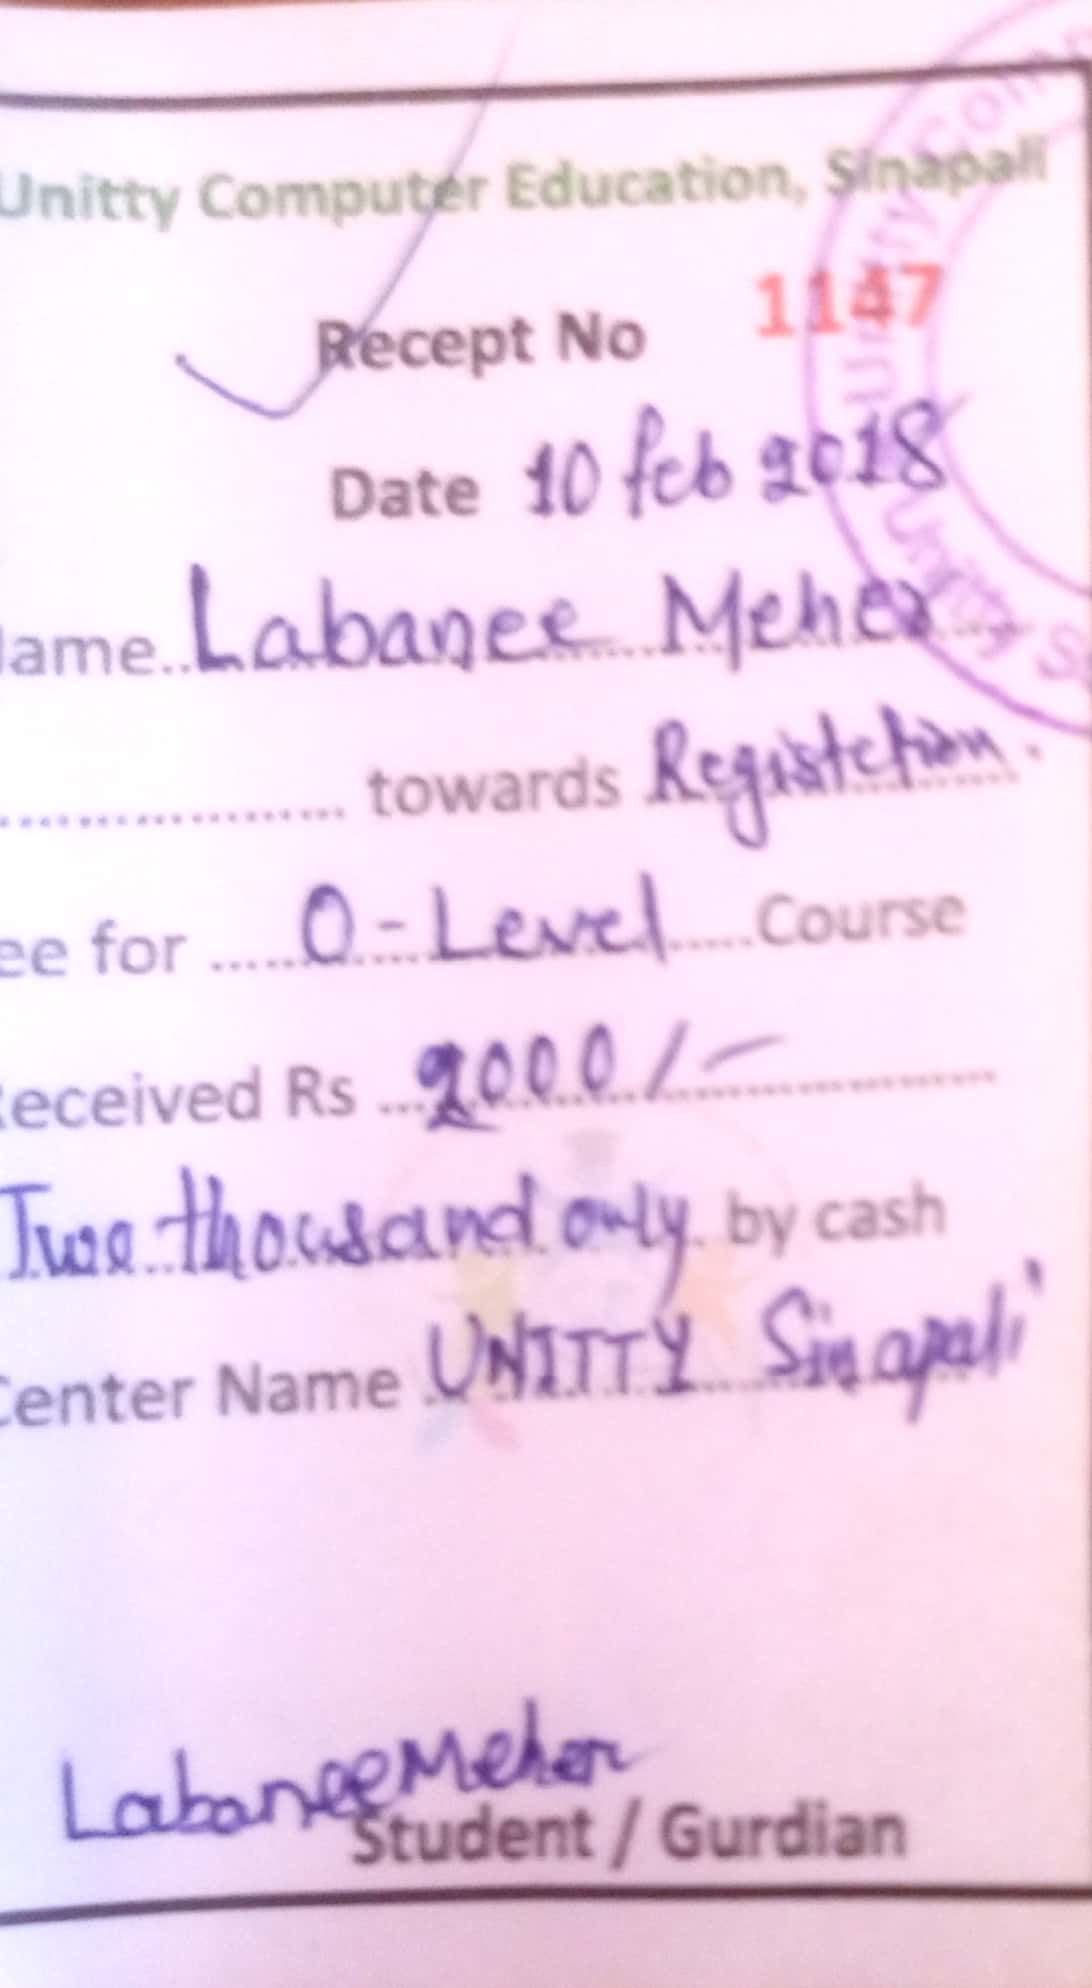 Unitty Computer Education, Sinapali
Recept No 1147
Date 10 feb 2018
ame..Labanee Meher
towards Registetion.
ee for ..... O-Level ..... Course
eceived Rs ... 2000/-
Two thousand only by cash
Center Name UNITTY Sinapali
Labanee Meher
Student / Gurdian
Unitty Com
Unitty S